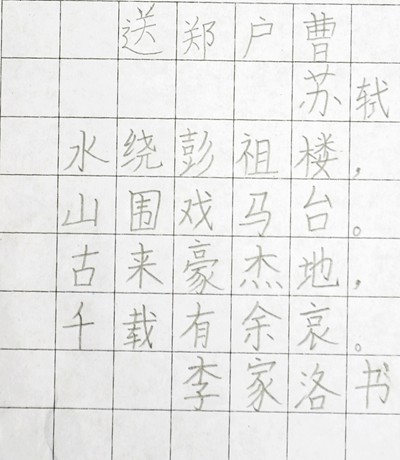 送郑户曹
苏轼
水绕彭祖楼，
山围戏马台。
古来豪杰地，
千载有余哀。
李家洛书